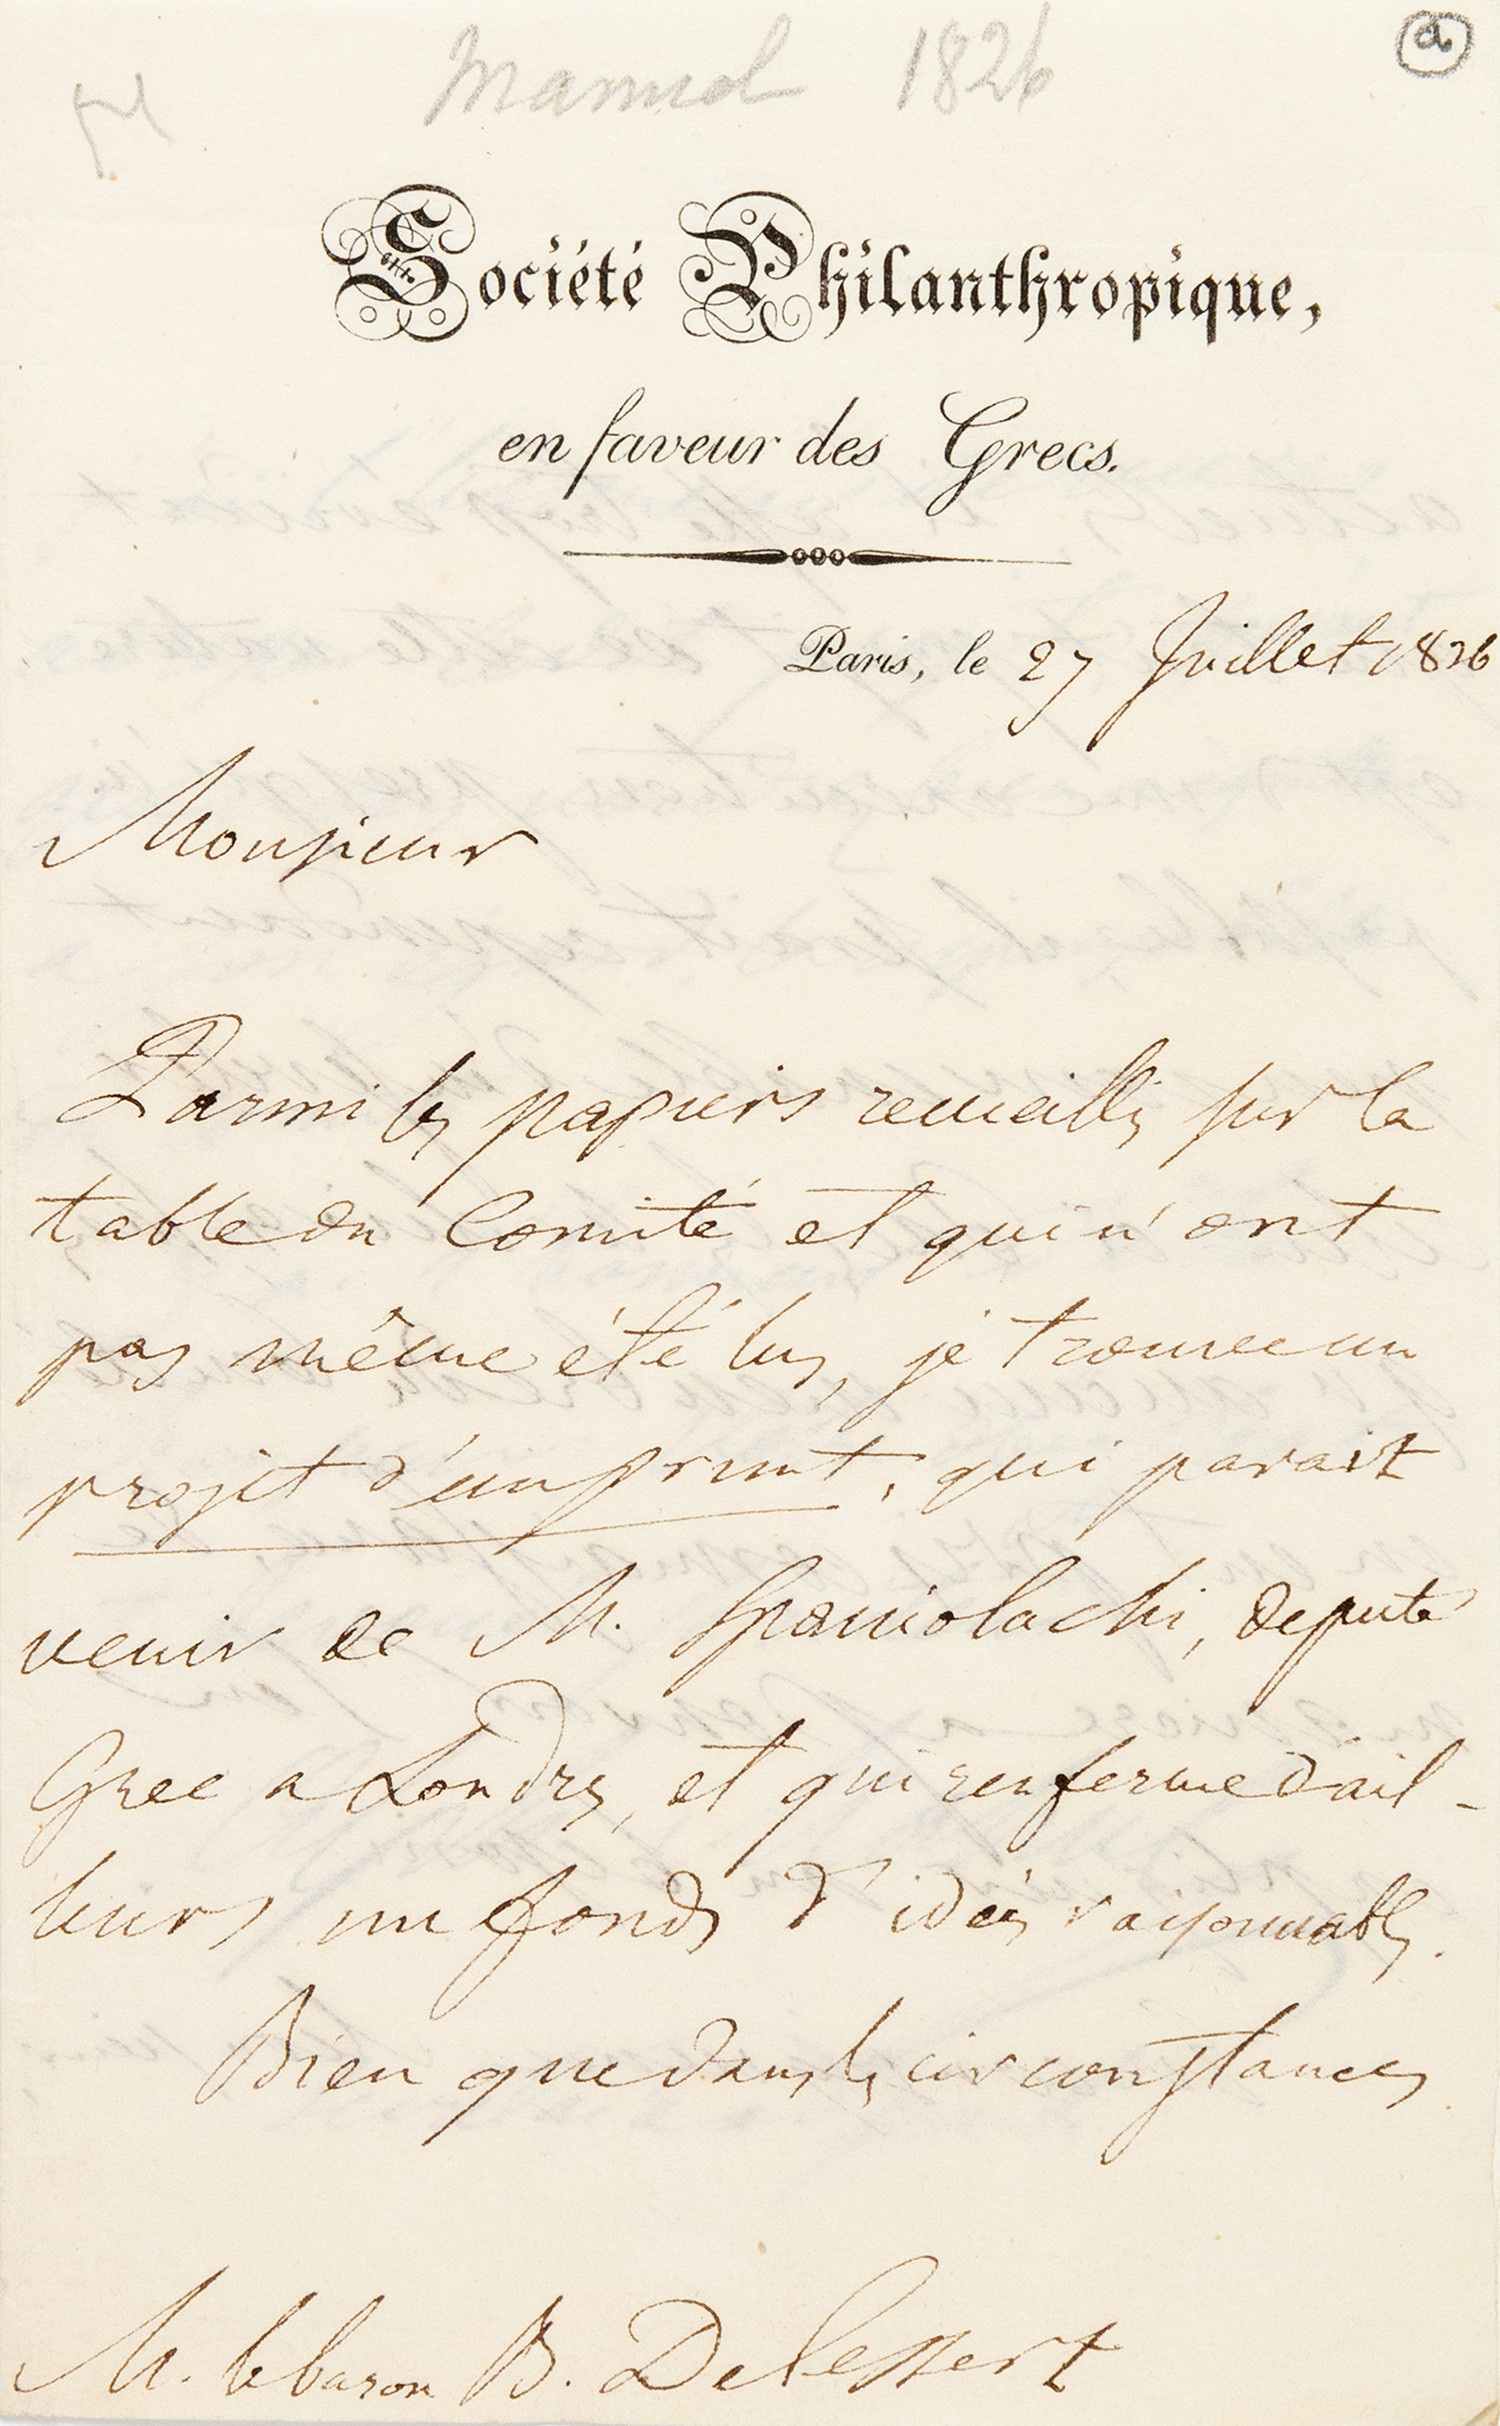 Manuel 1826
a
Société Philanthropique,
en faveur des Grecs.
Paris, le 27 Juillet 1826
Monsieur
Parmi les papiers recueillis sur la
table du Comité et qui n'ont
pas même été lus, je trouve un
projet d'emprunt, qui parait
venir de M. Spaniolachi, deputé
Grec a Londres, et qui renferme d'ail-
leurs un fonds d'idées raisonnables.
Bien que dans les circonstances
M. le baron B. Delessert